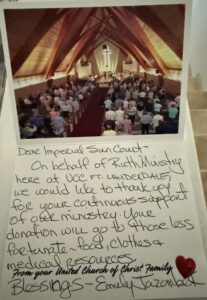 Dear Imperial Sun Court-
On behalf of Ruth Ministry
here at UCC FT. LAUDERDALE,
we would like to thank you
for your continuous support
of our ministry. Your
donation will go to those less
fortunate- food, clothes &
medical resources.
From your United Church of Christ Family
Blessings - Emily